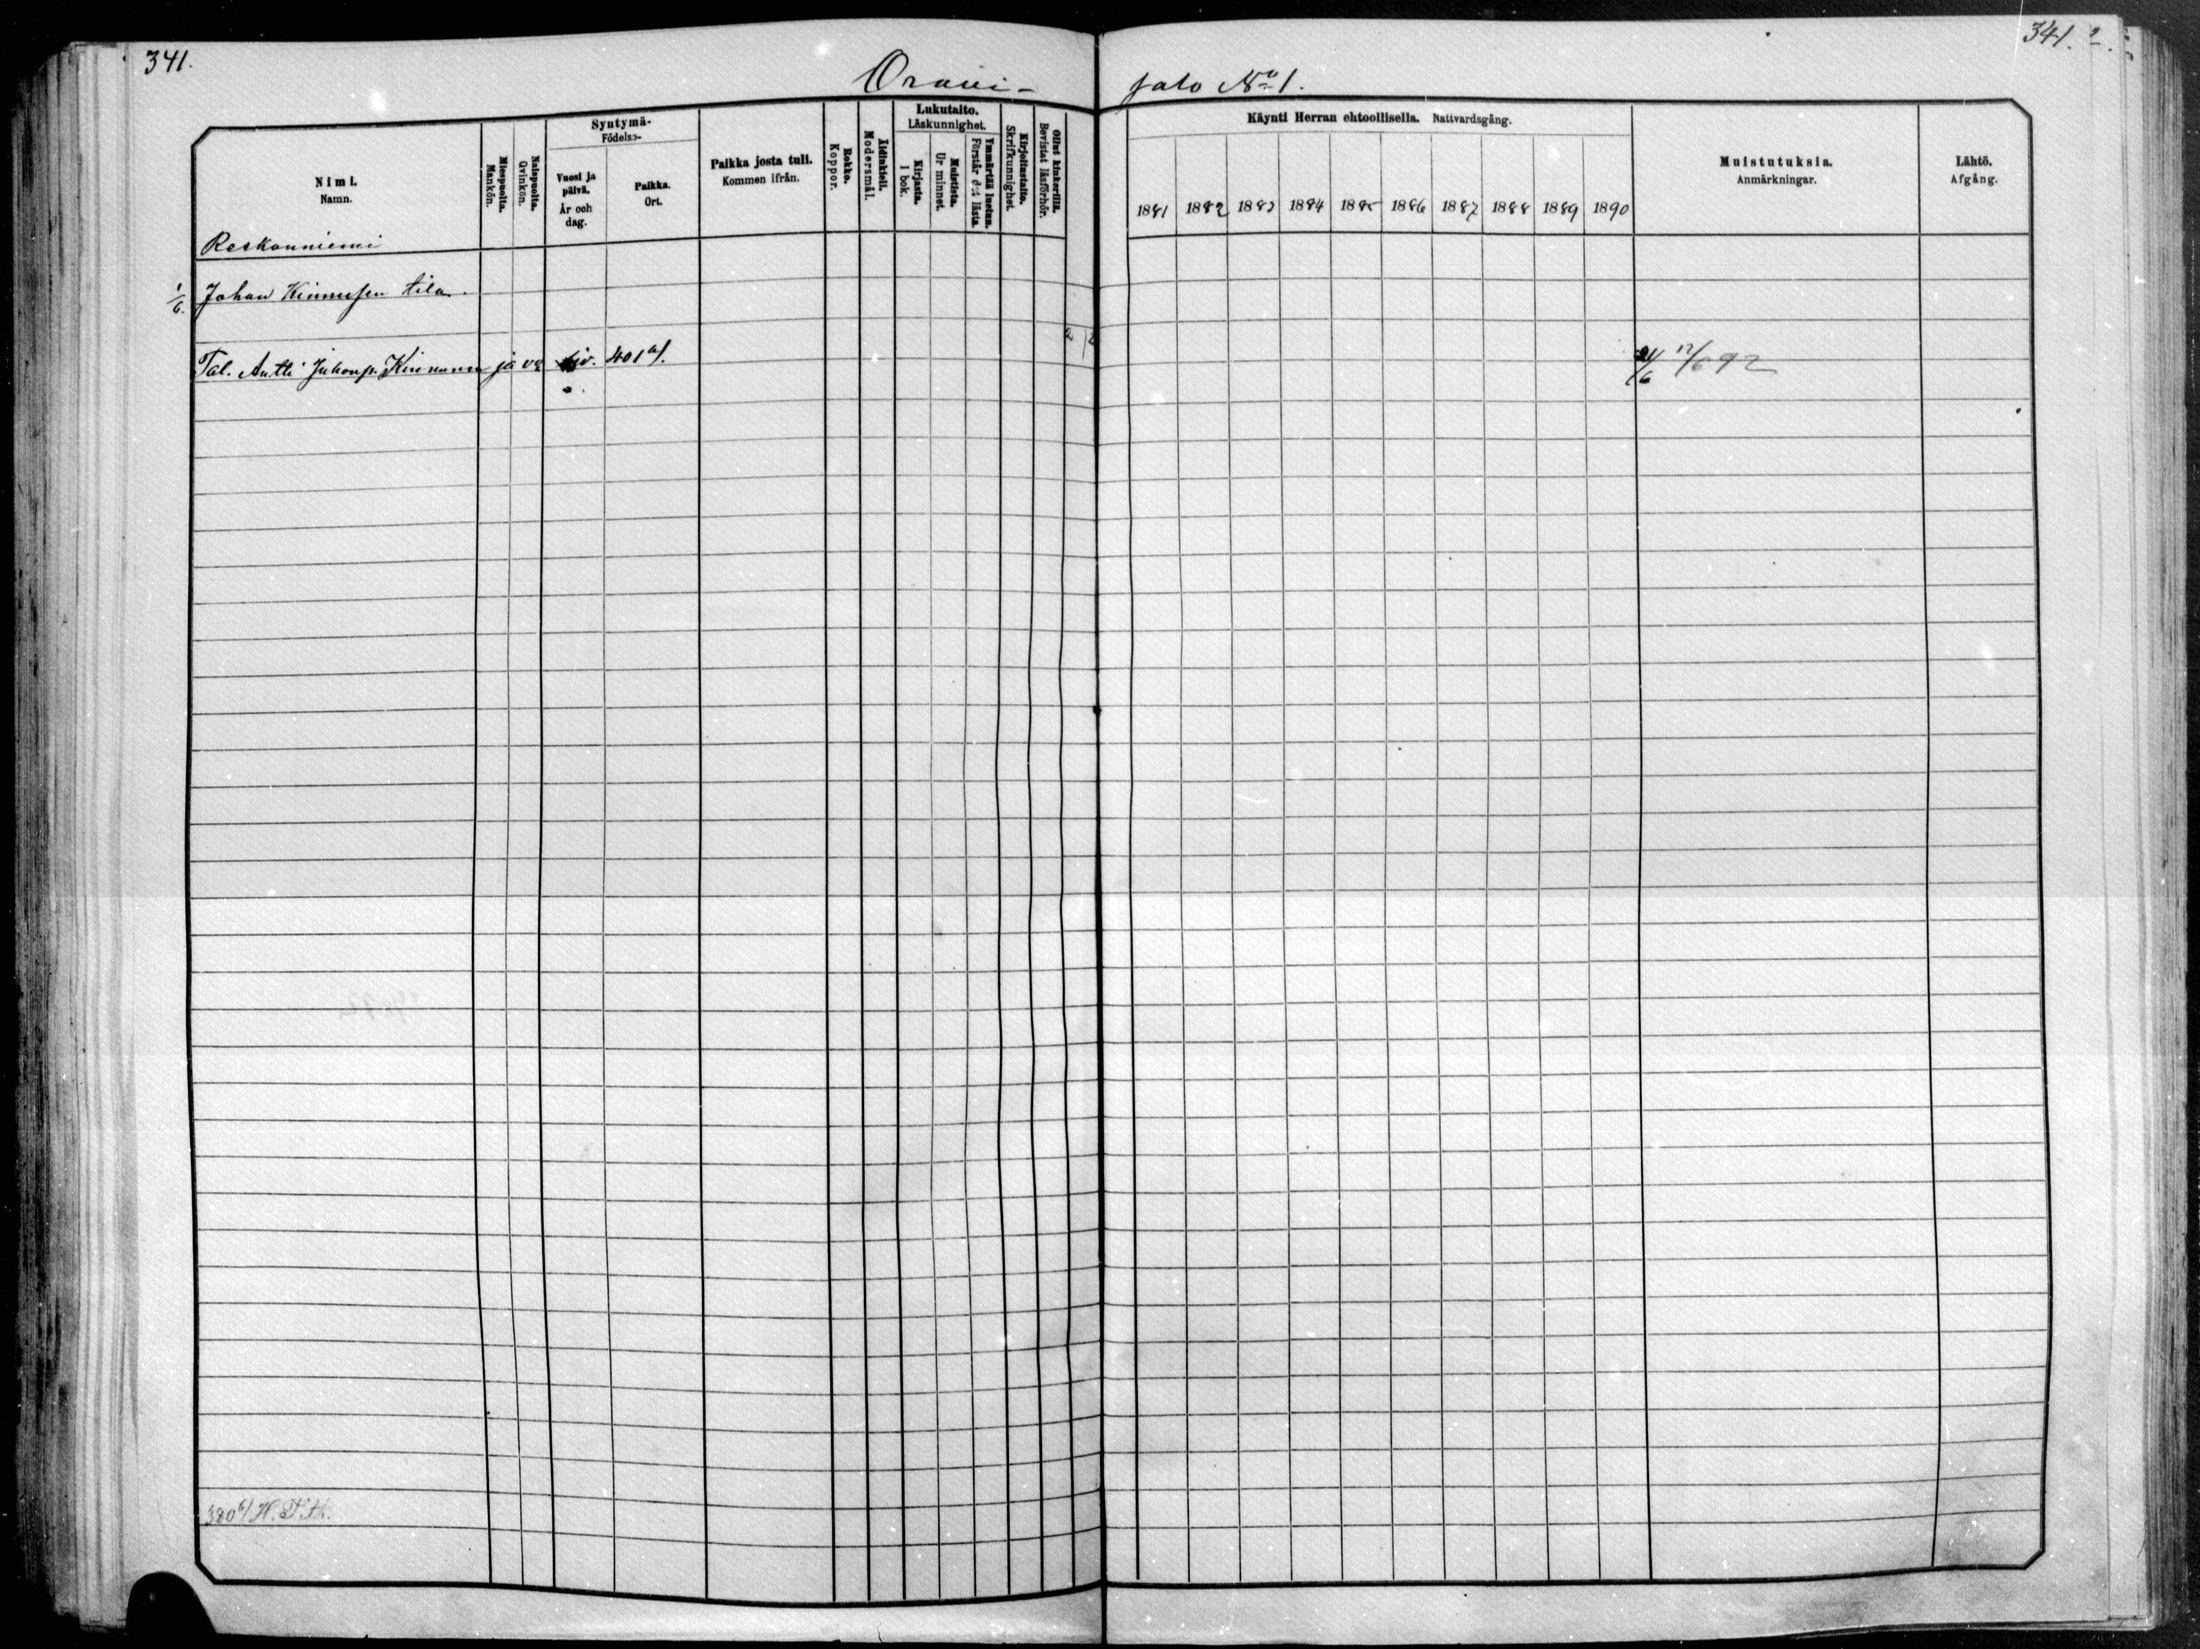 341.
341.
Oravi-
salo No 1.
Nimi.
Namn.
Miespuolta.
Mankön.
Naispuolta.
Qvinkön.
Syntymä-
Födelse-
Vuosi ja
päivä.
År och
dag.
Paikka.
Ort.
Paikka josta tuli.
Kommen ifrån.
Rokko.
Koppor.
Äidinkieli.
Modersmål.
Lukutaito.
Läskunnighet.
Kirjasta.
I bok.
Muistista.
Ur minnet.
Ymmärtää luetun.
Förstår det lästa
Kirjoitustaito.
Skrifkunnighet.
Ollut kinkerillä.
Bevistat läsförhör.
Käynti Herran ehtoollisella. Nattvardsgång.
1881 1882 1883 1884 1885 1886 1887 1888 1889 1890
Muistutuksia.
Anmärkningar.
Lähtö.
Afgång.
Reskanniemi
1/6. Johan Kinnusen tila.
Tal. Antti Juhonp. Kinnunen ja 401
12/6 92